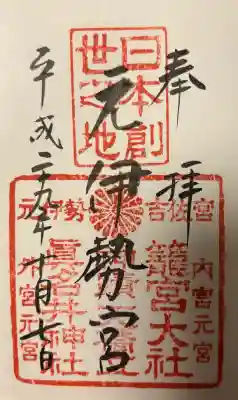 奉拝
日本創
世之地
元伊勢宮
平成
月七日
吉佐宮
内宮元宮
籠宮大社
元伊勢
眞名井神社
外宮元宮